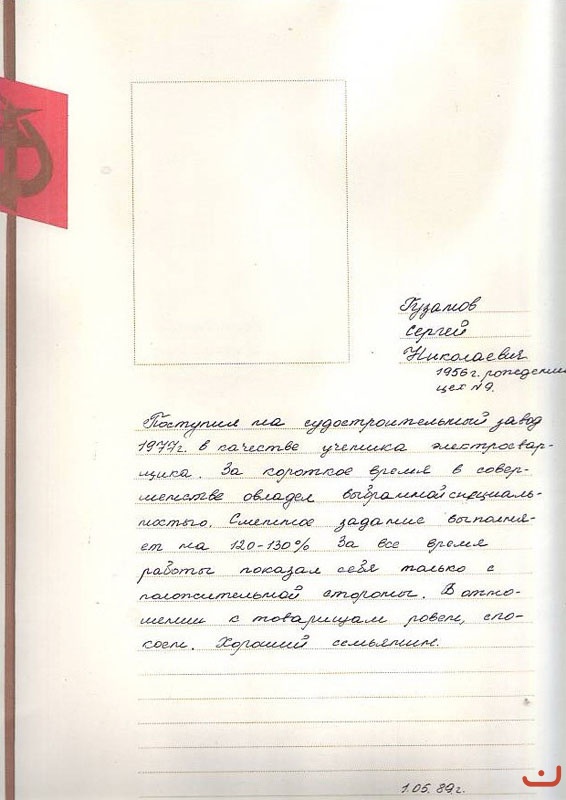 Гузанов
Сергей
Николаевич
1956г. рождения
цех №9.
Поступил на судостроительный завод
1977г. в качестве ученика электросвар-
щика. За короткое время в совер-
шенстве овладел выбранной специаль-
ностью. Сменное задание выполня-
ет на 120-130% За все время
работы показал себя только с
положительной стороны. В отно-
шении к товарищам ровен, спо-
коен. Хороший семьянин.
1.05.89г.